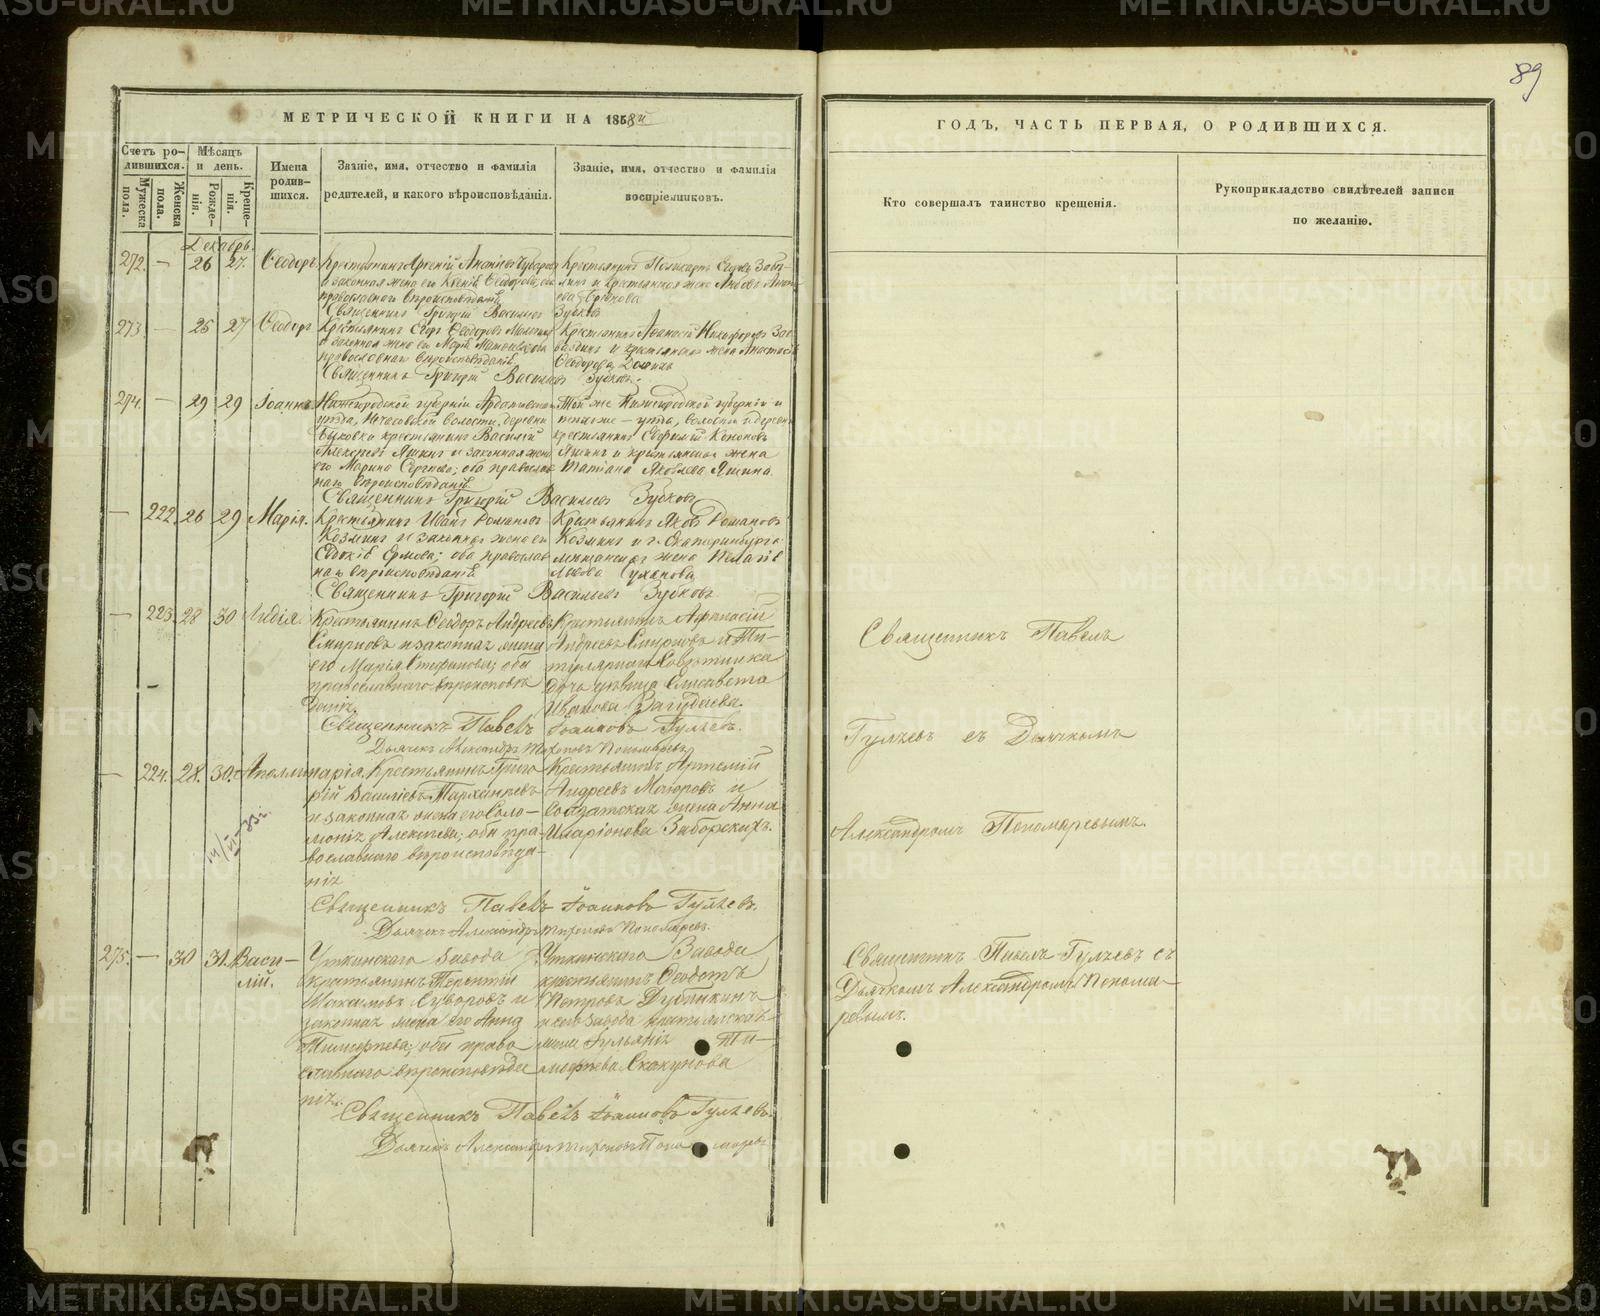 89
МЕТРИЧЕСКОЙ КНИГИ НА 1858й
ГОДЪ, ЧАСТЬ ПЕРВАЯ, О РОДИВШИХСЯ.
Счетъ ро-
дившихся.
Мужеска пола.
Женска пола.
Мѣсяцъ
и день.
Рожде-
нія.
Креще-
нія.
Имена
родив-
шихся.
Званіе, имя, отчество и фамилія
родителей, и какого вѣроисповѣданія.
Званіе, имя, отчество и фамилія
воспріемниковъ.
Кто совершалъ таинство крещенія.
Рукоприкладство свидѣтелей записи
по желанію.
Декабрь.
272. — 26 27. Ѳеодоръ
Крестьянинъ Арсеній
и законная жена его Ксенія Ѳеодорова, оба
православнаго вѣроисповѣданія
Крестьянинъ Поликарпъ
и крестьянская жена Любовь
Священникъ Григорій Васильевъ Зубковъ
273 — 25 27 Ѳеодоръ
Крестьянинъ Егоръ Ѳеодоровъ
и законная жена его Марія Матвѣева, оба
православнаго вѣроисповѣданія
Крестьянинъ Аѳанасій Никифоровъ
и крестьянская жена Анастасія
Ѳеодорова
Священникъ Григорій Васильевъ Зубковъ.
274. — 29 29 Іоаннъ
Нижегородской губерніи Ардатовскаго
уѣзда, волости, деревни
Быковки крестьянинъ Василій
Алексѣевъ Яшинъ и законная жена
его Марина Сергѣева; оба православ-
наго вѣроисповѣданія.
Той же Нижегородской губерніи и
того же уѣзда, волости и деревни
крестьянинъ Евфимій Кононовъ
Яшинъ и крестьянская жена
Татіана Яковлева Яшина.
Священникъ Григорій Васильевъ Зубковъ
— 222. 26 29 Марія.
Крестьянинъ Иванъ Романовъ
Козминъ и законная жена его
Евдокія Ермова; оба православ-
наго вѣроисповѣданія
Крестьянинъ Яковъ Романовъ
Козминъ и г. Екатеринбурга
мѣщанская жена Пелагія
Львова Суханова
Священникъ Григорій Васильевъ Зубковъ
— 223. 28 30 Лидія.
Крестьянинъ Ѳеодоръ Андреевъ
Смирновъ и законная жена
его Марія Стефанова; оба
православнаго вѣроисповѣ-
данія.
Крестьянинъ Афанасій
Андреевъ Смирновъ и Ти-
тулярнаго Совѣтника
дочь дѣвица Елисавета
Иванова Загудаева.
Священникъ Павелъ Іоанновъ Гуляевъ.
Дьячекъ Александръ Тихоновъ Пономаревъ
Священникъ Павелъ
Гуляевъ съ Дьячкомъ
Александромъ Пономаревымъ.
— 224. 28. 30. Аполлинарія.
Крестьянинъ Григо-
рій Василіевъ Тарханѣевъ
и законная жена его Соло-
монія Алексѣева; оба пра-
вославнаго вѣроисповѣда-
нія
Крестьянинъ Артемій
Андреевъ Маюровъ и
Солдатская жена Анна
Иларіонова Заборскихъ.
Священникъ Павелъ Іоанновъ Гуляевъ.
Дьячекъ Александръ Тихоновъ Пономаревъ.
275. — 30 31. Васи-
лій.
Уткинскаго Завода
крестьянинъ Терентій
Максимовъ Суворовъ и
законная жена его Анна
Тимофѣева; оба право-
славнаго вѣроисповѣда-
нія.
Уткинскаго Завода
крестьянинъ Ѳеодотъ
Петровъ Дубинкинъ
и сего Завода крестьянская
жена Гульянія Ти-
мофѣева Скакунова
Священникъ Павелъ Іоанновъ Гуляевъ.
Дьячекъ Александръ Тихоновъ Пономаревъ
Священникъ Павелъ Гуляевъ съ
Дьячкомъ Александромъ Понома-
ревымъ.
METRIKI.GASO-URAL.RU